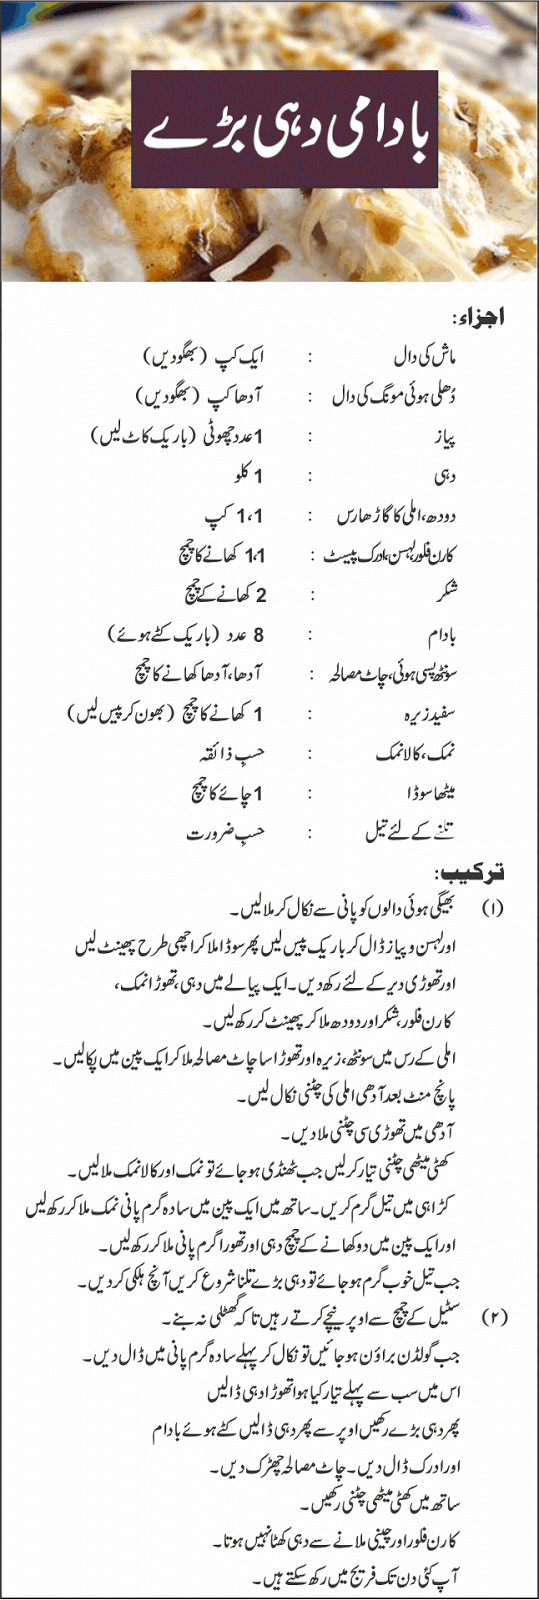 بادامی دہی بڑے
اجزاء:
ماش کی دال : ایک کپ (بھگودیں)
دُھلی ہوئی مونگ کی دال : آدھا کپ (بھگودیں)
پیاز : 1 عدد چھوٹی (باریک کاٹ لیں)
دہی : 1 کلو
دودھ، املی کا گاڑھا رس : 1،1 کپ
کارن فلور، لہسن، ادرک پیسٹ : 1،1 کھانے کا چمچ
شکر : 2 کھانے کے چمچ
بادام : 8 عدد (باریک کٹے ہوئے)
سونٹھ پسی ہوئی، چاٹ مصالحہ : آدھا، آدھا کھانے کا چمچ
سفید زیرہ : 1 کھانے کا چمچ (بھون کر پیس لیں)
نمک، کالا نمک : حسبِ ذائقہ
میٹھا سوڈا : 1 چائے کا چمچ
تلنے کے لئے تیل : حسبِ ضرورت
ترکیب:
(۱) بھیگی ہوئی دالوں کو پانی سے نکال کر ملا لیں۔
اور لہسن و پیاز ڈال کر باریک پیس لیں پھر سوڈا ملا کر اچھی طرح پھینٹ لیں
اور تھوڑی دیر کے لئے رکھ دیں۔ ایک پیالے میں دہی، تھوڑا نمک،
کارن فلور، شکر اور دودھ ملا کر پھینٹ کر رکھ لیں۔
املی کے رس میں سونٹھ، زیرہ اور تھوڑا سا چاٹ مصالحہ ملا کر ایک پین میں پکالیں۔
پانچ منٹ بعد آدھی املی کی چٹنی نکال لیں۔
آدھی میں تھوڑی سی چٹنی ملا دیں۔
کھٹی میٹھی چٹنی تیار کر لیں جب ٹھنڈی ہو جائے تو نمک اور کالا نمک ملا لیں۔
کڑاہی میں تیل گرم کریں۔ ساتھ میں ایک پین میں سادہ گرم پانی نمک ملا کر رکھ لیں
اور ایک پین میں دو کھانے کے چمچ دہی اور تھورا گرم پانی ملا کر رکھ لیں۔
جب تیل خوب گرم ہو جائے تو دہی بڑے تلنا شروع کریں آنچ ہلکی کر دیں۔
(۲) سٹیل کے چمچ سے اوپر نیچے کرتے رہیں تاکہ گھٹلی نہ بنے۔
جب گولڈن براؤن ہو جائیں تو نکال کر پہلے سادہ گرم پانی میں ڈال دیں۔
اس میں سب سے پہلے تیار کیا ہوا تھوڑا دہی ڈالیں
پھر دہی بڑے رکھیں اوپر سے پھر دہی ڈالیں کٹے ہوئے بادام
اور ادرک ڈال دیں۔ چاٹ مصالحہ چھڑک دیں۔
ساتھ میں کھٹی میٹھی چٹنی رکھیں۔
کارن فلور اور چینی ملانے سے دہی کھٹا نہیں ہوتا۔
آپ کئی دن تک فریج میں رکھ سکتے ہیں۔